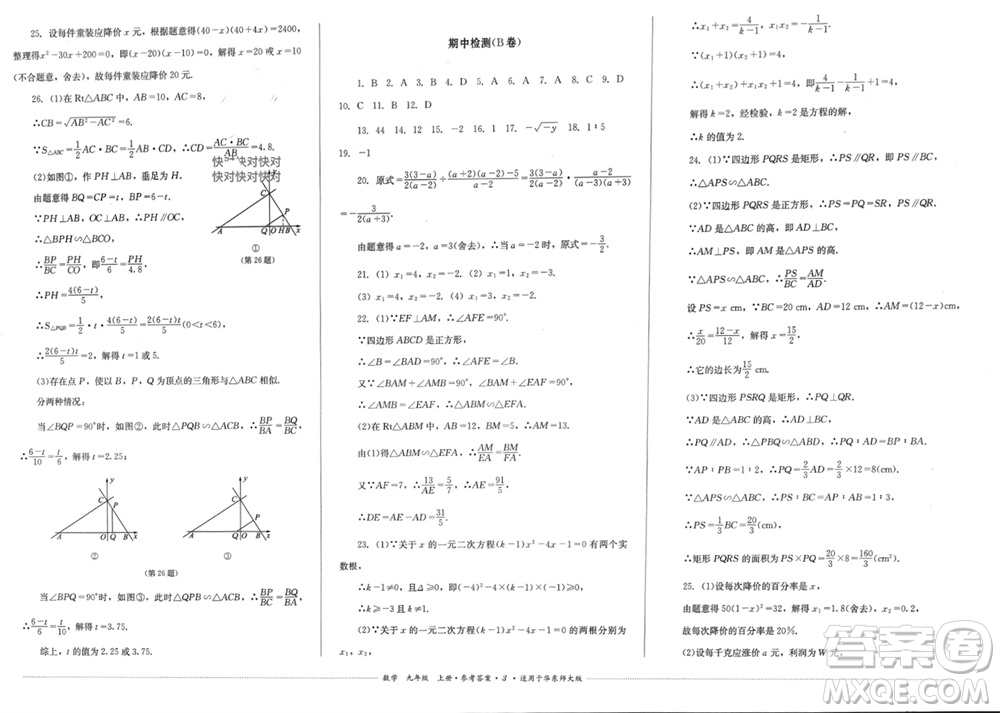 25. 设每件童装应降价 x 元，根据题意得(40－x)(40＋4x)＝2400，
整理得x²－30x＋200＝0，即(x－20)(x－10)＝0，解得 x＝20或x＝10
(不合题意，舍去)，故每件童装应降价 20 元.
26. (1)在 Rt△ABC 中，AB＝10，AC＝8，
∴CB＝√(AB²－AC²)＝6.
∵S△ABC＝1/2 AC·BC＝1/2 AB·CD，∴CD＝AC·BC/AB＝4.8.
快对快对快对
快对快对快对
(2)如图①，作 PH⊥AB，垂足为 H.
由题意得 BQ＝CP＝t，BP＝6－t.
∵PH⊥AB，OC⊥AB，
∴△BPH∽△BCO，
∴BP/BC＝PH/CO，即(6－t)/6＝PH/4.8，
∴PH＝4(6－t)/5，
C P A Q O H B x
①
(第 26 题)
∴S△PQB＝1/2·t·4(6－t)/5＝2(6－t)t/5(0＜t＜6)，
∴2(6－t)t/5＝2，解得 t＝1 或5.
(3)存在点 P，使得以 B，P，Q 为顶点的三角形与△ABC 相似.
分两种情况：
当∠BQP＝90°时，如图②，此时△PQB∽△ACB，∴BP/BA＝BQ/BC，
∴(6－t)/10＝t/6，解得 t＝2.25；
y C P A O Q B x
②
y C P A Q B x
③
(第 26 题)
当∠BPQ＝90°时，如图③，此时△QPB∽△ACB，∴BP/BC＝BQ/BA，
∴(6－t)/6＝t/10，解得 t＝3.75.
综上，t 的值为 2.25 或 3.75.
期中检测(B 卷)
1. B 2. B 3. D 4. A 5. D 6. A 7. B 8. D 9. A
10. C 11. B 12. D
13. 44 14. D 15. －2 16. 1 17. －√－y 18. 1∶5
19. －1
20. 原式＝3(3－a)/2(a－2)÷(a＋2)(a－2)－5/a－2＝3(3－a)/2(a－2)·a－2/(a＋3)(a－3)
＝－3/2(a＋3).
由题意得 a＝－2，a＝3(舍去)，∴原式＝－3/2.
21. (1) x₁＝4，x₂＝－2. (2) x₁＝2，x₂＝－3.
(3) x₁＝4，x₂＝－2. (4) x₁＝1，x₂＝4.
22. (1)∵EF⊥AM，∴∠AFE＝90°.
∵四边形 ABCD 是正方形，
∴∠B＝∠BAD＝90°，∴∠AFE＝∠B.
又∵∠BAM＋∠EAF＝90°，∠BAM＋∠AMB＝90°，
∴∠EAF＝∠AMB，∴△ABM∽△EFA.
(2)在 Rt△ABM 中，AB＝12，BM＝5，∴AM＝13.
由(1)得△ABM∽△EFA，∴AM/EA＝BM/FA.
又∵AF＝7，∴13/AE＝5/7，∴AE＝91/5，
∴DE＝AE－AD＝31/5.
23. (1)∵关于 x 的一元二次方程(k－1)x²－4x－1＝0 有两个实
数根，
∴k－1≠0，且Δ≥0，即(－4)²－4(k－1)·(－1)≥0，
∴k≥－3 且 k≠1.
(2)∵关于 x 的一元二次方程(k－1)x²－4x－1＝0 的两根分别为
x₁，x₂，
∴x₁＋x₂＝4/(k－1)，x₁·x₂＝－1/(k－1).
∵(x₁＋x₂)＋x₁x₂＝4，∴4/(k－1)－1/(k－1)＝4，
解得 k＝2，经检验，k＝2 是方程的解，
∴k 的值为 2.
24. (1)∵四边形 PQRS 是矩形，∴PS∥QR，即 PS∥BC，
∴△APS∽△ABC.
(2)∵四边形 PQRS 是正方形，∴PS＝PQ＝SR，PS∥QR.
∵AD 是△ABC 的高，即 AD⊥BC，
∴AM⊥PS，即 AM 是△APS 的高.
∵△APS∽△ABC，∴PS/BC＝AM/AD.
设 PS＝x cm，∵BC＝20 cm，AD＝12 cm，∴AM＝(12－x)cm，
∴x/20＝12－x/12，解得 x＝15/2，
∴它的边长为15/2 cm.
(3)∵四边形 PSRQ 是矩形，∴PQ⊥QR.
∵AD 是△ABC 的高，∴AD⊥BC，
∴PQ∥AD，∴△PBQ∽△ABD，
∴PQ/AD＝BP/BA＝2/3，∴PQ＝2/3 AD＝2/3×12＝8(cm).
∵△APS∽△ABC，∴PS∶BC＝AP∶AB＝1∶3，
∴PS＝1/3 BC＝20/3(cm)，
∴矩形 PQRS 的面积为 PS×PQ＝20/3×8＝160/3(cm²).
25. (1)设每次降价的百分率是 x，
由题意得 50(1－x)²＝32，解得 x₁＝1.8(舍去)，x₂＝0.2，
故每次降价的百分率为 20%.
(2)设每千克应涨价 m 元，利润为 W 元，
数学 九年级 上册·参考答案·3·适用于华东师大版
作业帮